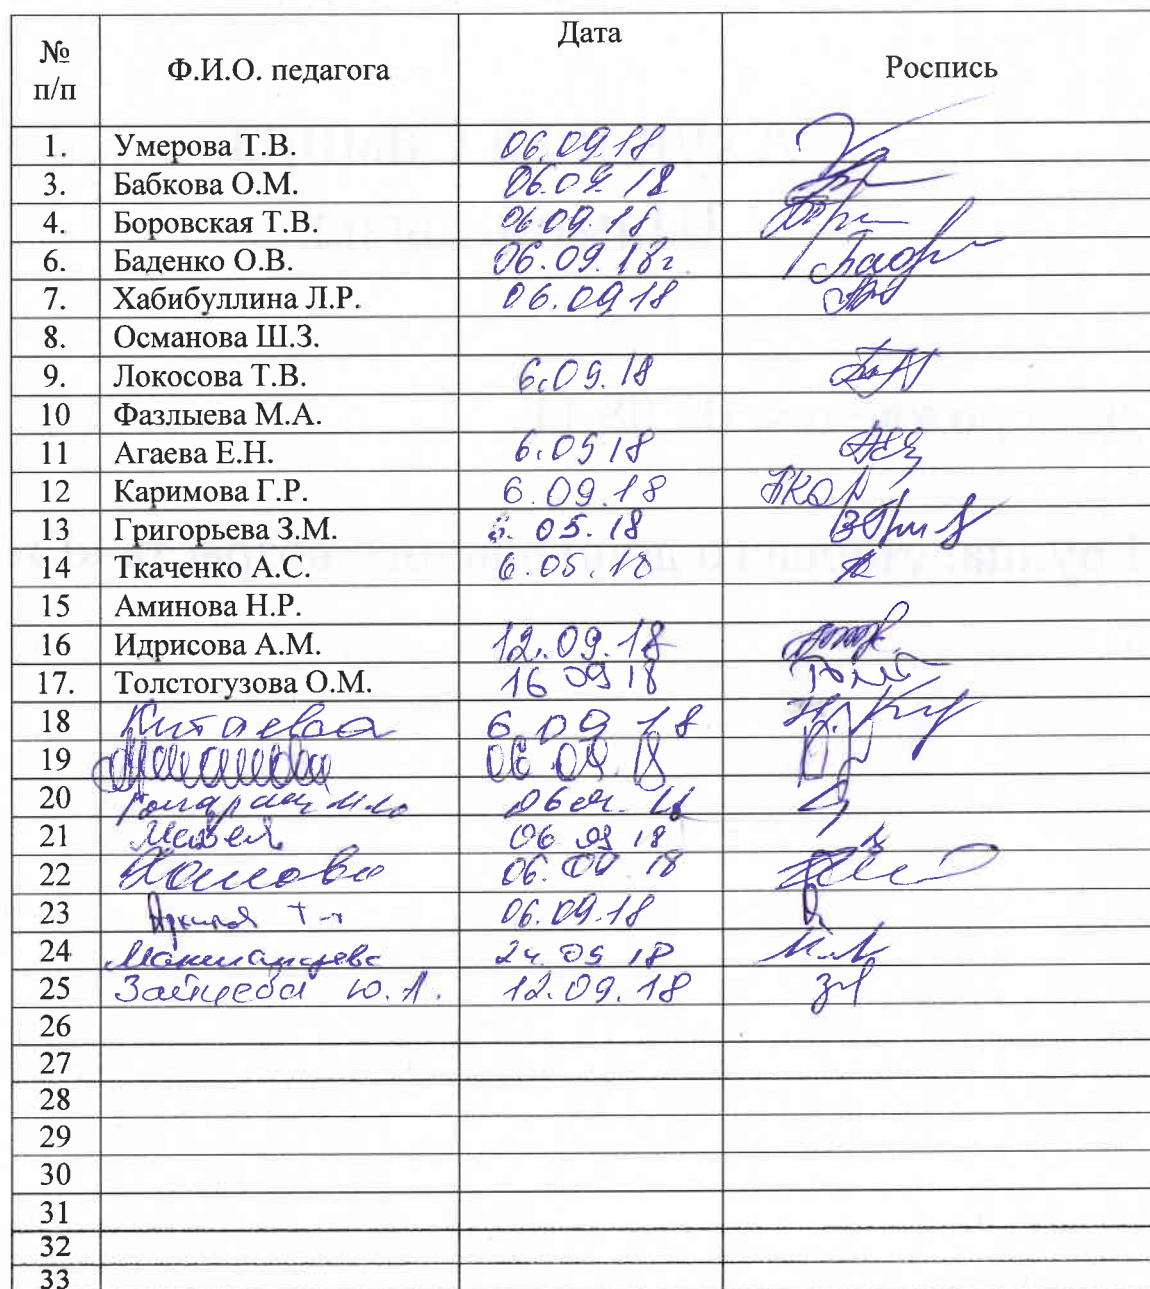 № п/п Ф.И.О. педагога Дата Роспись
1. Умерова Т.В. 06.09.18
3. Бабкова О.М. 06.09.18
4. Боровская Т.В. 06.09.18
6. Баденко О.В. 06.09.18г
7. Хабибуллина Л.Р. 06.09.18
8. Османова Ш.З.
9. Локосова Т.В. 6.09.18
10 Фазлыева М.А.
11 Агаева Е.Н. 6.09 18
12 Каримова Г.Р. 6.09.18
13 Григорьева З.М. 6.05.18
14 Ткаченко А.С. 6.05.18
15 Аминова Н.Р.
16 Идрисова А.М. 12.09.18
17. Толстогузова О.М. 16 09 18
18 Китаева 6 09 18
19 06 09 18
20
21 06 09 18
22 06.09 18
23 06.09.18
24 24 09 18
25 Зайцева Ю.А. 12.09.18
26
27
28
29
30
31
32
33